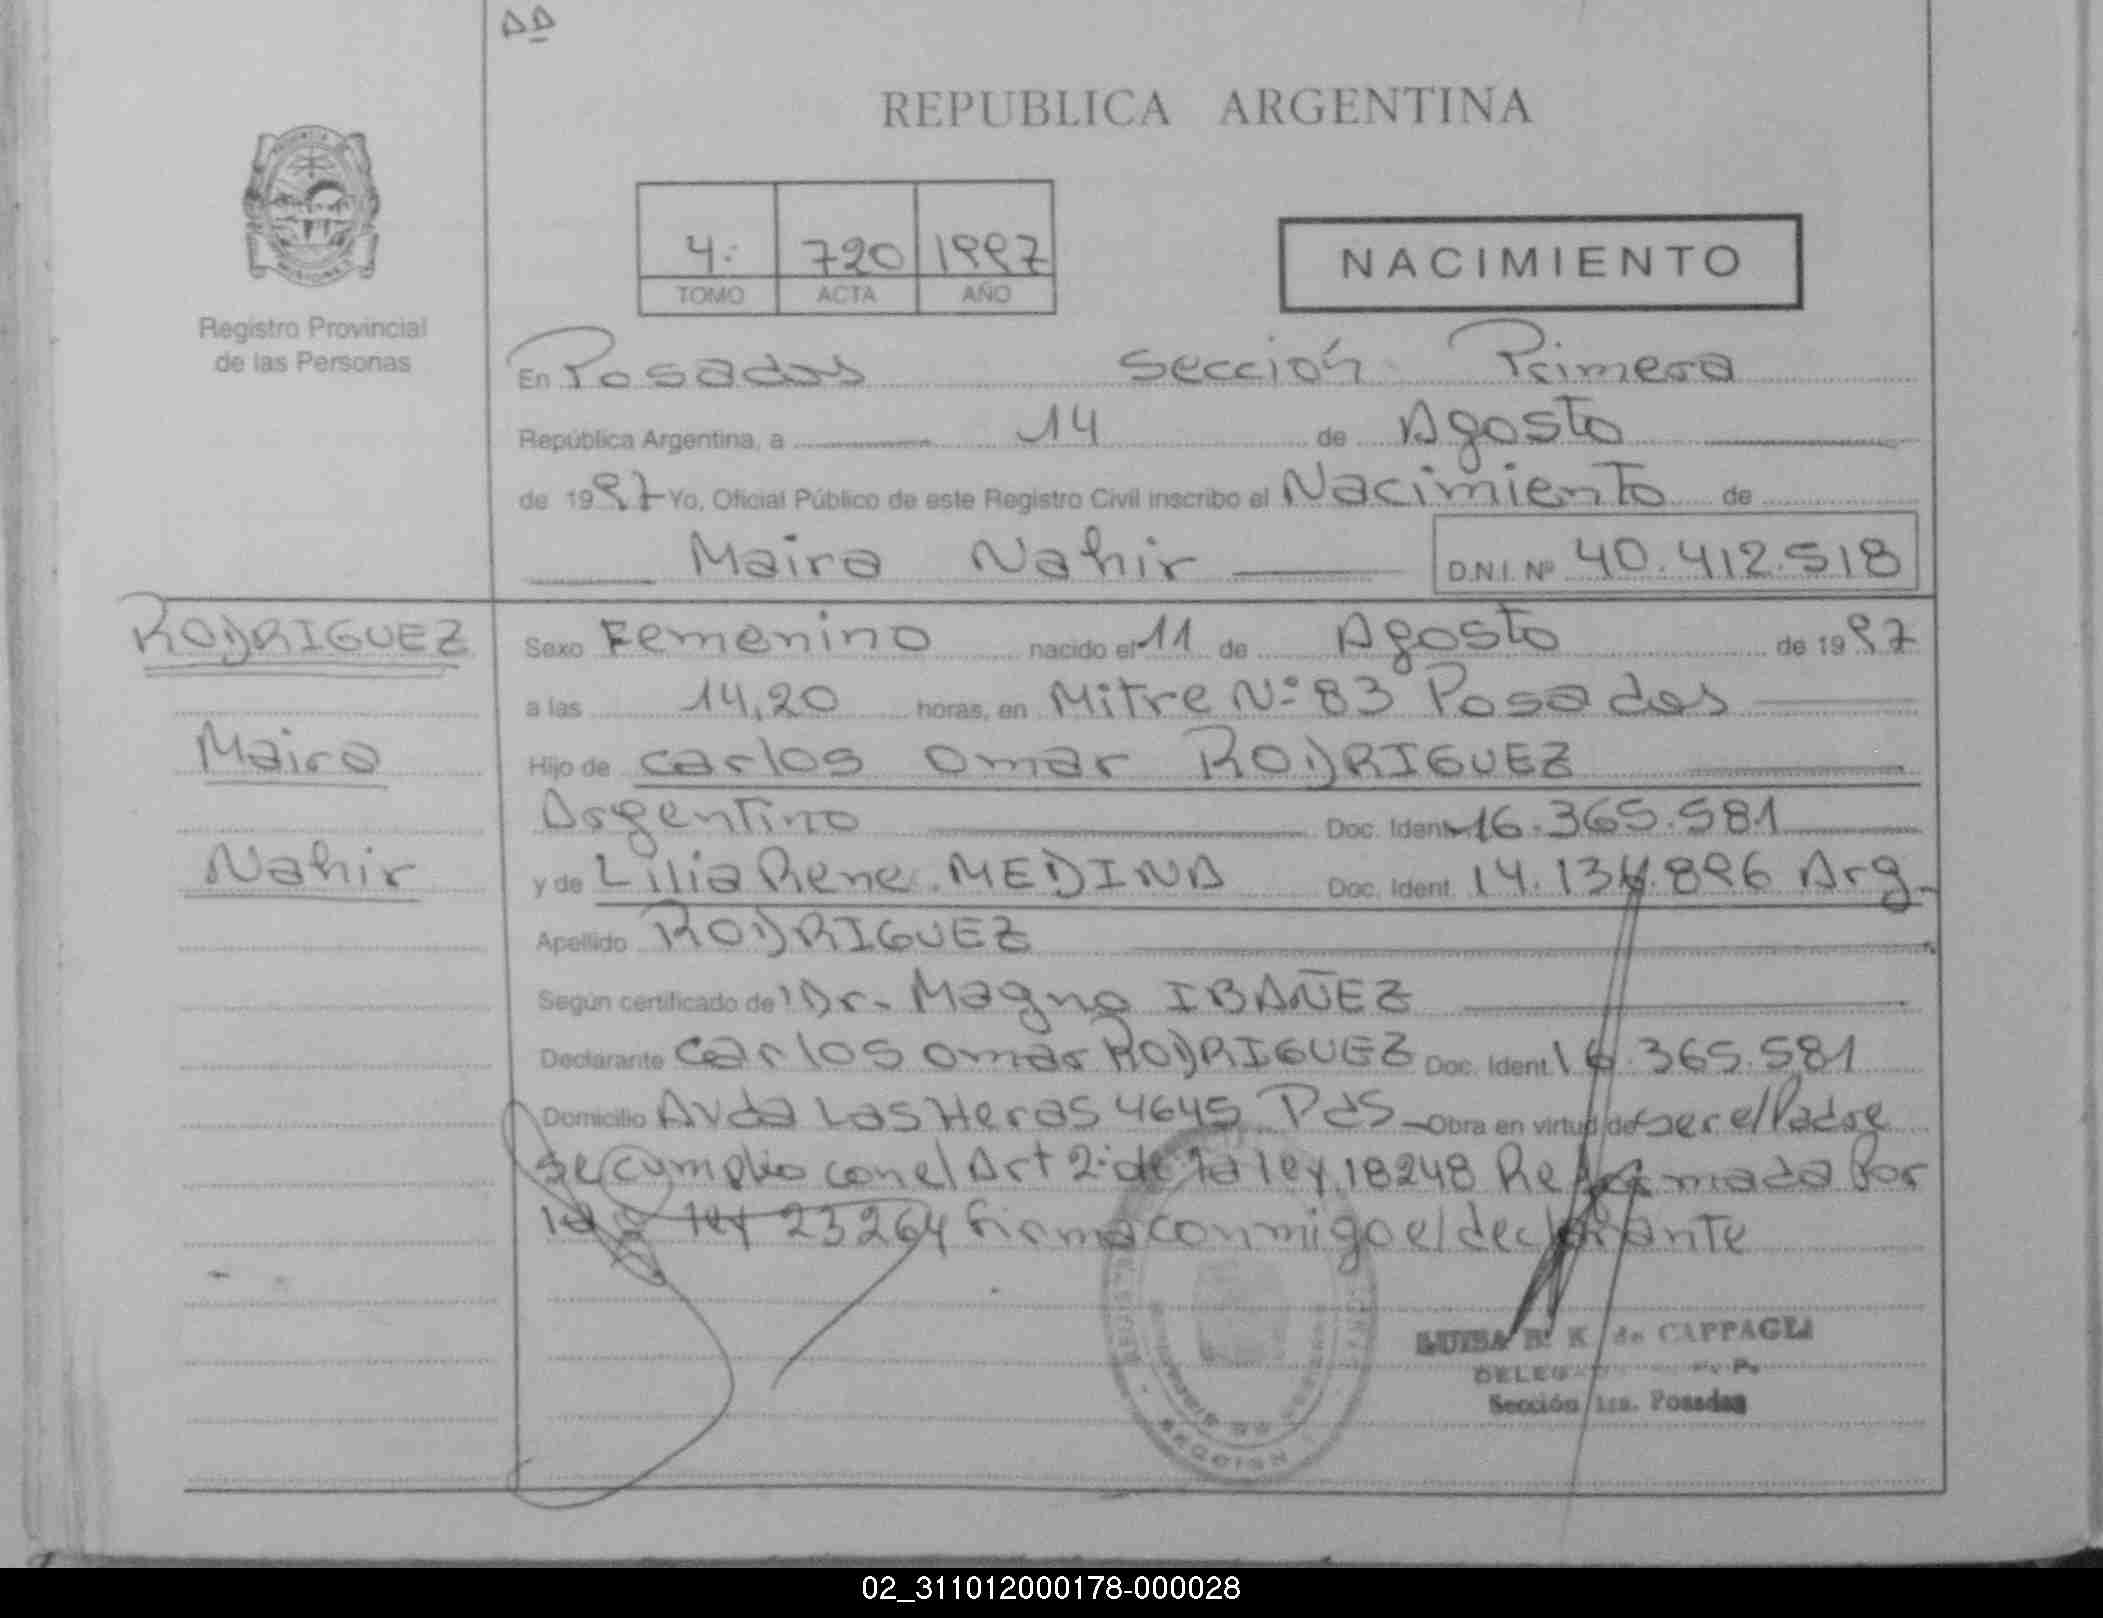 REPUBLICA ARGENTINA
4: 720 1997
TOMO ACTA AÑO
NACIMIENTO
Registro Provincial
de las Personas
En Posadas Sección Primera
República Argentina, a 14 de Agosto
de 1997 Yo, Oficial Público de este Registro Civil inscribo el Nacimiento de
Maira Nahir D.N.I. Nº 40.412.518
RODRIGUEZ
Maira
Nahir
Sexo Femenino nacido el 11 de Agosto de 1997
a las 14,20 horas, en Mitre Nº 83 Posadas
Hijo de Carlos Omar RODRIGUEZ
Argentino Doc. Ident. 16.365.581
y de Lilia Rene MEDINA Doc. Ident. 14.134.896 Arg.
Apellido RODRIGUEZ
Según certificado de Dr. Magno IBAÑEZ
Declarante Carlos Omar RODRIGUEZ Doc. Ident. 16.365.581
Domicilio Avda Las Heras 4645 PdS Obra en virtud de ser el Padre
se cumplio con el Art 2: de la ley 18248 Reformada Por
la ley 23264 firma conmigo el declarante
LUISA B. K. de CAPPAGLI
Sección 1ra. Posadas
02_311012000178-000028